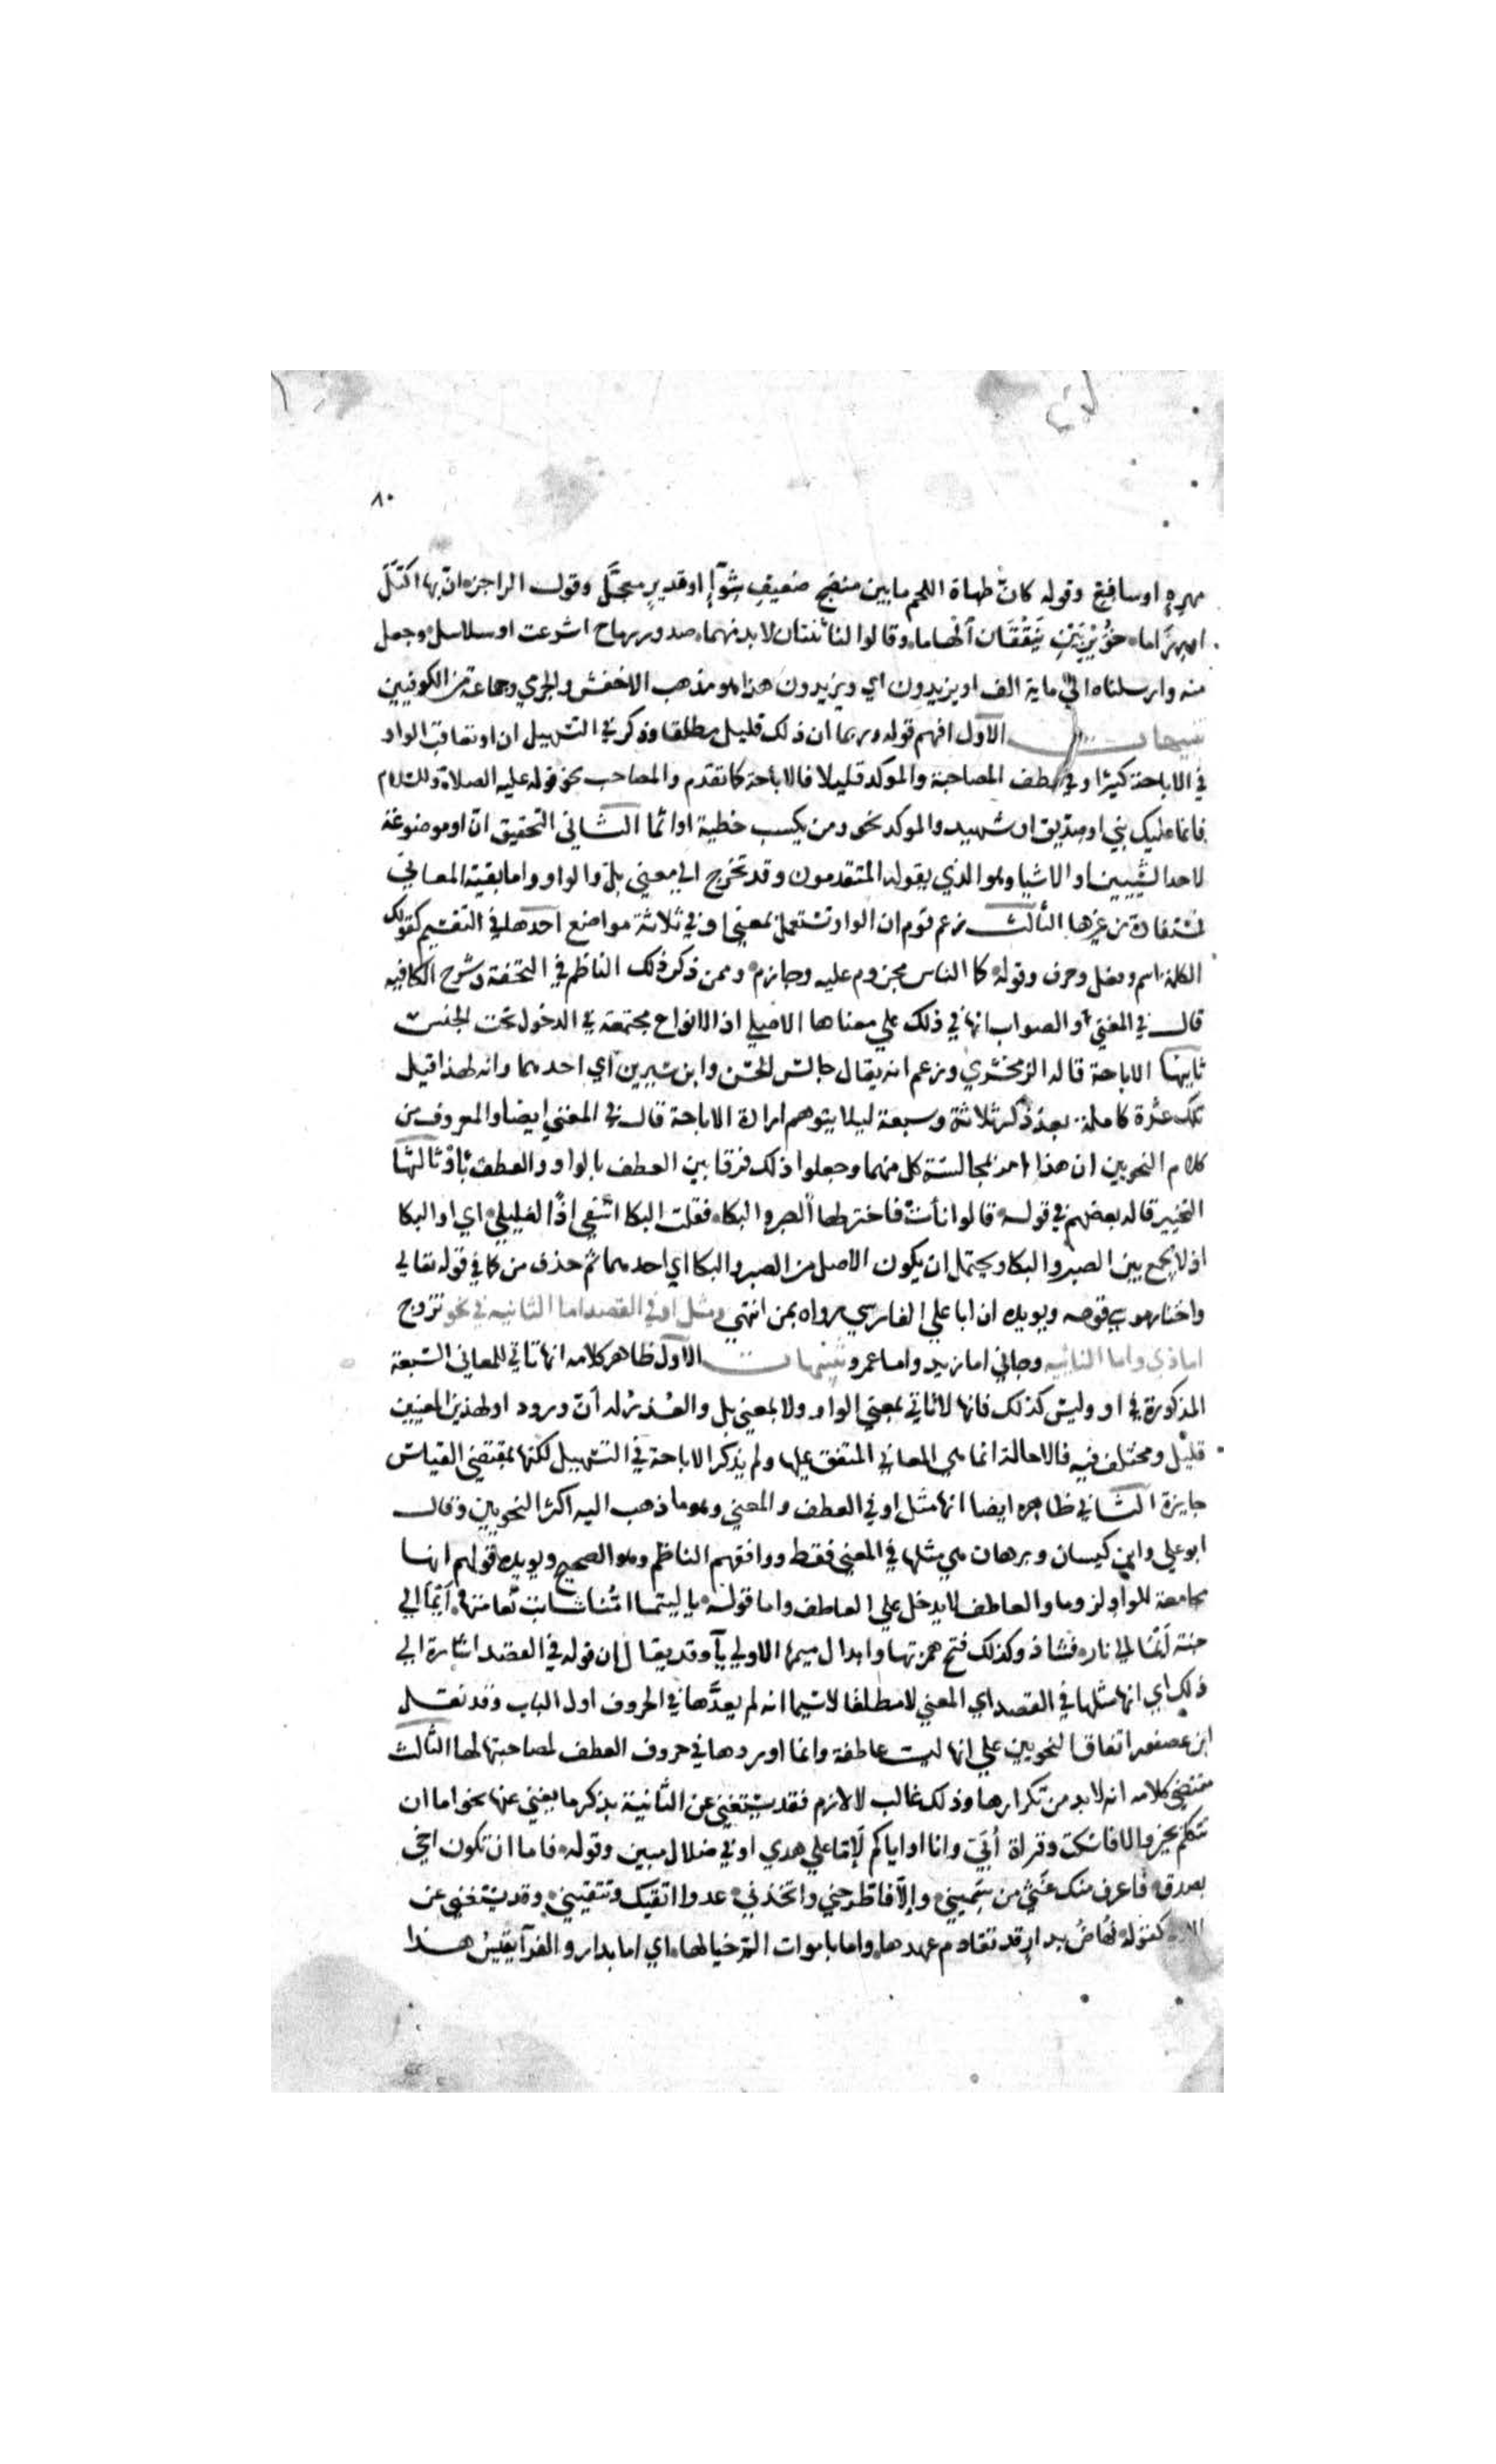 ٨٠
مهره او سافع وقوله كان طهاة اللحم ما بين منضج ضعيف شوآء او قدير معجل وقول الراجز ان بها اكتل
او رزاما خويربين ينقفان الهاما وقالوا لنا ثنتان لا بد منهما صدور رماح اشرعت او سلاسل وجعل
منه وارسلناه الي ماية الف او يزيدون اي ويزيدون هذا هو مذهب الاخفش والجرمي وجماعة من الكوفيين
تنبيهات الاول افهم قوله وربما ان ذلك قليل مطلقا وذكر في التسهيل ان او تعاقب الواو
في الاباحة كثيرا وفي عطف المصاحبة والموكد قليلا فالاباحة كما تقدم والمصاحب نحو قوله عليه الصلاة والسلام
فانما عليك نبي او صديق او شهيد والموكد نحو ومن يكسب خطية او اثما الثاني التحقيق ان او موضوعة
لاحد الشيبين او الاشيا وهو الذي يقوله المتقدمون وقد تخرج الي معني بل والواو واما بقية المعاني
فمستفادة من غيرها الثالث زعم قوم ان الواو تستعمل بمعني او في ثلاثة مواضع احدها في التقسيم كقولك
الكلمة اسم وفعل وحرف وقوله كما الناس مجزوم عليه وجازم وممن ذكر ذلك الناظم في التحفة وشرح الكافيه
قال في المغني والصواب انها في ذلك علي معناها الاصلي اذ الانواع مجتمعة في الدخول تحت الجنس
ثانيها الاباحة قاله الزمخشري وزعم انه يقال جالس الحسن وابن سيرين اي احدهما وانه لهذا قيل
تلك عشرة كاملة بعد ذكر ثلاثة وسبعة ليلا يتوهم ارادة الاباحة قال في المغني ايضا والمعروف من
كلام النحويين ان هذا امر بمجالسة كل منهما وجعلوا ذلك فرقا بين العطف بالواو والعطف باو ثالثها
التخيير قاله بعضهم في قوله قالوا نأت فاختر لها الصبر والبكا فقلت البكا اشفي اذا لغليلي اي او البكا
اذ لا يجمع بين الصبر والبكا ويحتمل ان يكون الاصل من الصبر والبكا اي احدهما ثم حذف من كما في قوله تعالي
واختار موسي قومه ويويده ان ابا علي الفارسي رواه بمن انتهي ومثل او في القصد اما الثانيه في نحو تزوج
اما ذي واما النائيه وجاني اما زيد واما عمرو تنبيهات الاول ظاهر كلامه انها تاتي للمعاني السبعة
المذكورة في او وليس كذلك فانها لا تاتي بمعني الواو ولا بمعني بل والعذر له ان ورود او لهذين المعنيين
قليل ومختلف فيه فالاحالة انما هي المعاني المتفق عليها ولم يذكر الاباحة في التسهيل لكنها بمقتضي القياس
جايزة الثاني ظاهره ايضا انها مثل او في العطف والمعني وهو ما ذهب اليه اكثر النحويين وقال
ابو علي وابن كيسان وبرهان هي مثلها في المعني فقط ووافقهم الناظم وهو الصحيح ويويده قولهم انها
مجامعة للواو لزوما والعاطف لا يدخل علي العاطف واما قوله يا ليتما امنا شالت نعامتها ايما الي
جنة ايما الي نار فشاذ وكذلك فتح همزتها وابدال ميمها الاولي يآ وقد يقال ان قوله في القصد اشارة الي
ذلك اي انها مثلها في القصد اي المعني لا مطلقا لا سيما انه لم يعدها في الحروف اول الباب وقد نقل
ابن عصفور اتفاق النحويين علي انها ليست عاطفة وانما اوردها في حروف العطف لمصاحبتها لها الثالث
مقتضي كلامه انه لا بد من تكرارها وذلك غالب لا لازم فقد يستغني عن الثانية بذكر ما يغني عنها نحو اما ان
تتكلم بخير والا فاسكت وقراة أبي وانا او اياكم لاما علي هدي او في ضلال مبين وقوله فاما ان تكون اخي
بصدق فاعرف منك غثي من سميني والا فاطرحني واتخذني عدوا اتقيك وتتقيني وقد يستغني عن
الاولي كقوله تهاض بدار قد تقادم عهدها واما باموات الم خيالها اي اما بدار والفرآ يقيس هذا